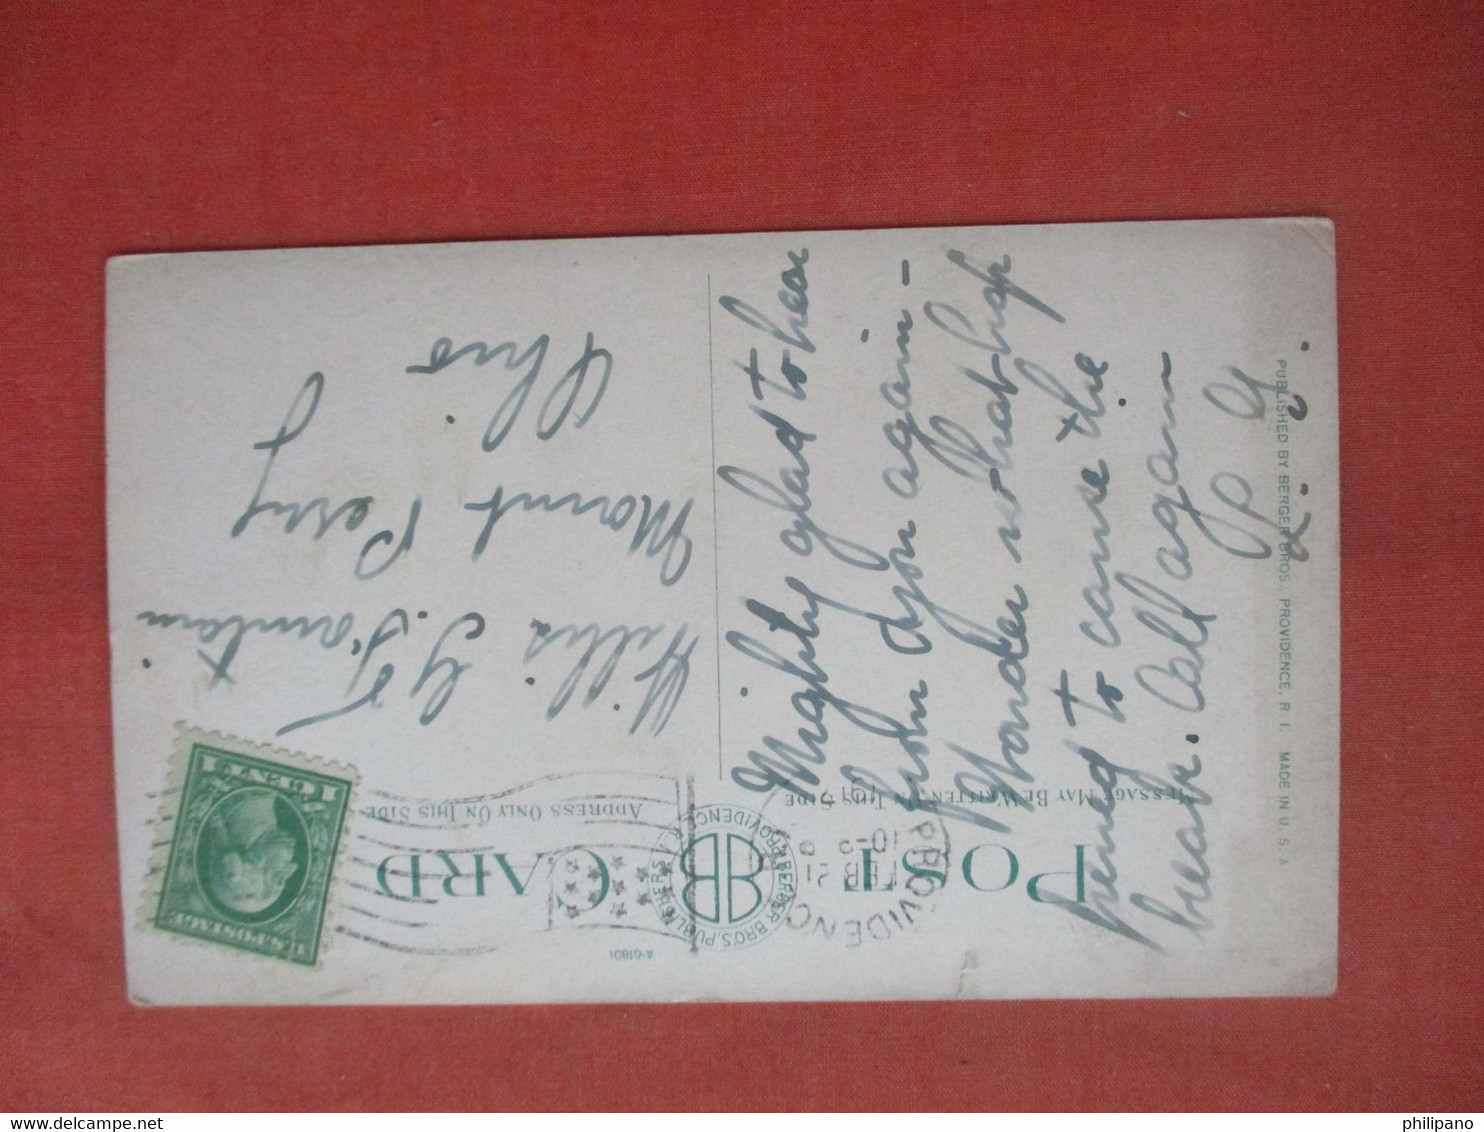 POST CARD
MESSAGE MAY BE WRITTEN ON THIS SIDE
ADDRESS ONLY ON THIS SIDE
A-61801
BERGER BRO'S. PUBLISHERS PROVIDENCE R.I.
BB
PROVIDENCE
FEB 21
10-
U.S. POSTAGE
1 CENT 1
Mighty glad to hear
from you again -
Wonder what hap
pened to cause the
break. Call again
P G
Willis G.
Fountain
Mount Perry
Ohio
PUBLISHED BY BERGER BROS., PROVIDENCE, R. I. MADE IN U. S. A
philipano